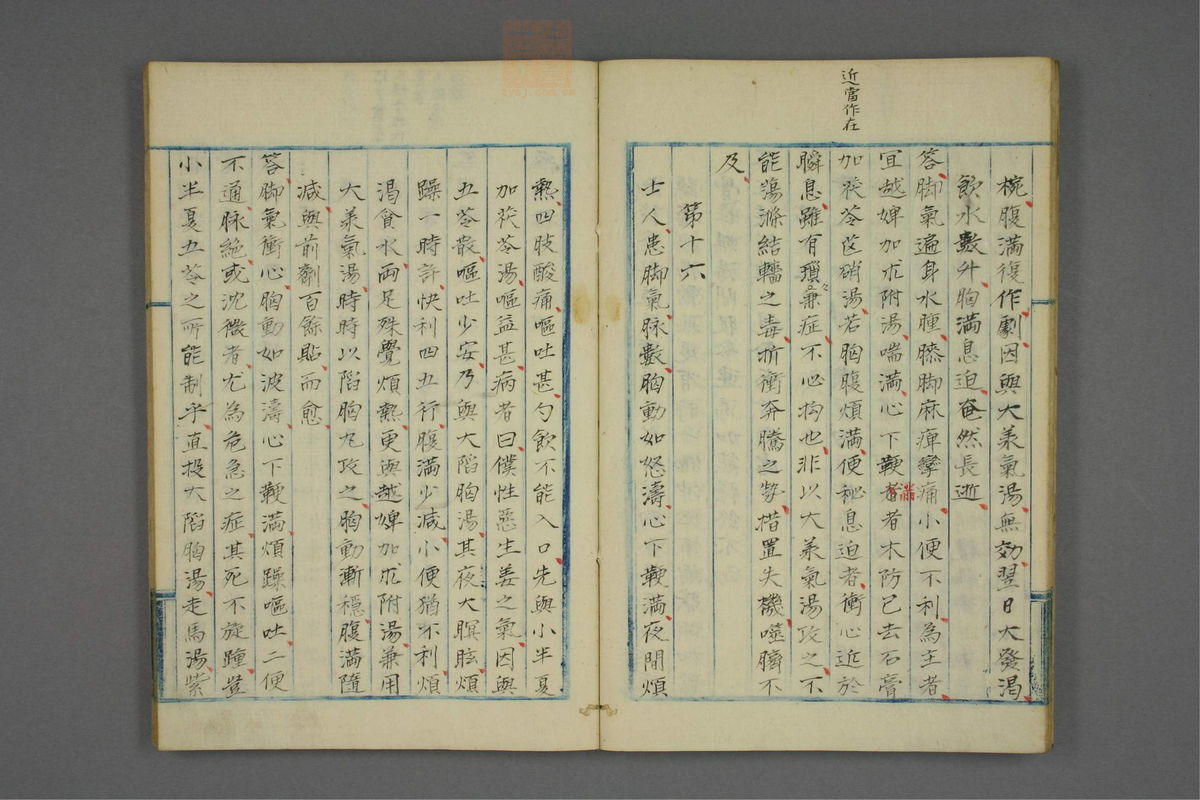 近當作在
椀腹滿復作劇因與大羕氣湯無効翌日大發渴
飲水數外胸滿息迫奄然長逝
答脚氣遍身水腫膝脚麻痺攣痛小便不利為主者
宜越婢加朮附湯喘滿心下鞕滿者木防已去石膏
加茯苓芒硝湯若胸腹煩滿便秘息迫者衝心近於
瞬息雖有瑣々兼症不必拘也非以大羕氣湯攻之不
能蕩滌結轖之毒折衝奔騰之勢措置失機噬臍不
及
第十六
士人患脚氣脉數胸動如怒濤心下鞕滿夜間煩
熱四肢酸痛嘔吐甚勺飲不能入口先與小半夏
加茯苓湯嘔益甚病者曰僕性惡生姜之氣因與
五苓散嘔吐少安乃與大陷胸湯其夜大瞑眩煩
躁一時許快利四五行腹滿少減小便猶不利煩
渴貪水兩足殊覺煩熱更與越婢加朮附湯兼用
大羕氣湯時時以陷胸丸攻之胸動漸穩腹滿隨
減與前劑百餘貼而愈
答脚氣衝心胸動如波濤心下鞕滿煩躁嘔吐二便
不通脉絕或沈微者尤為危急之症其死不旋踵豈
小半夏五苓之所能制乎直投大陷胸湯走馬湯紫